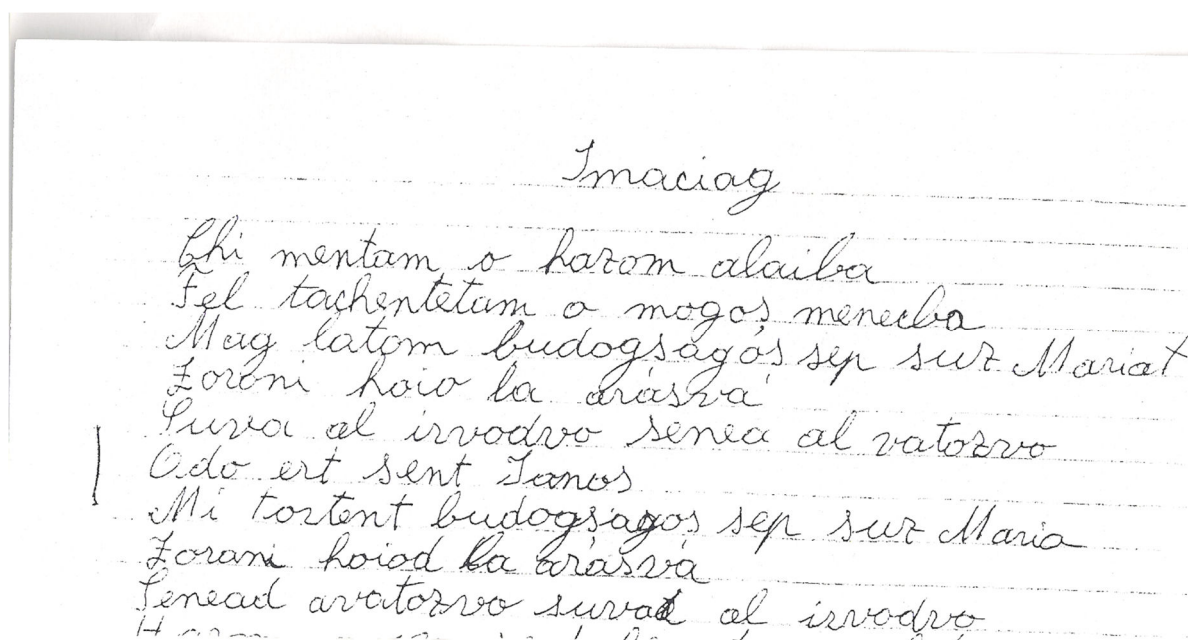 Imaciag
Chi mentam o hazom alaiba
Fel tachentetam o mogoș menecba
Mag latom budogságós sep suz Mariat
Zorani hoio la arásvá
Suva al izvodvo senea al vatozvo
Odo ert sent Ianos
Mi tortent budogsagoș sep suz Maria
Zorani hoiod la arásvá
Senead avatozvo suvad al izvodvo